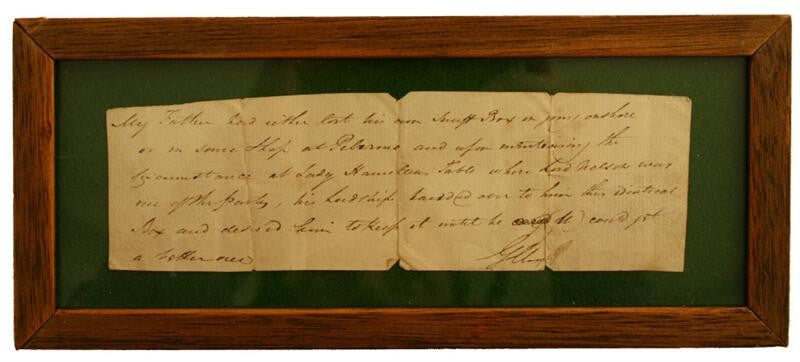 My Father had either lost his own Snuff Box in going onshore
or in some Shop at Palermo and upon mentioning the
Circumstance at Lady Hamiltons Table where Lord Nelson was
one of the party, his Lordship handed over to him this identical
Box and desired him to keep it until he could get
a better one